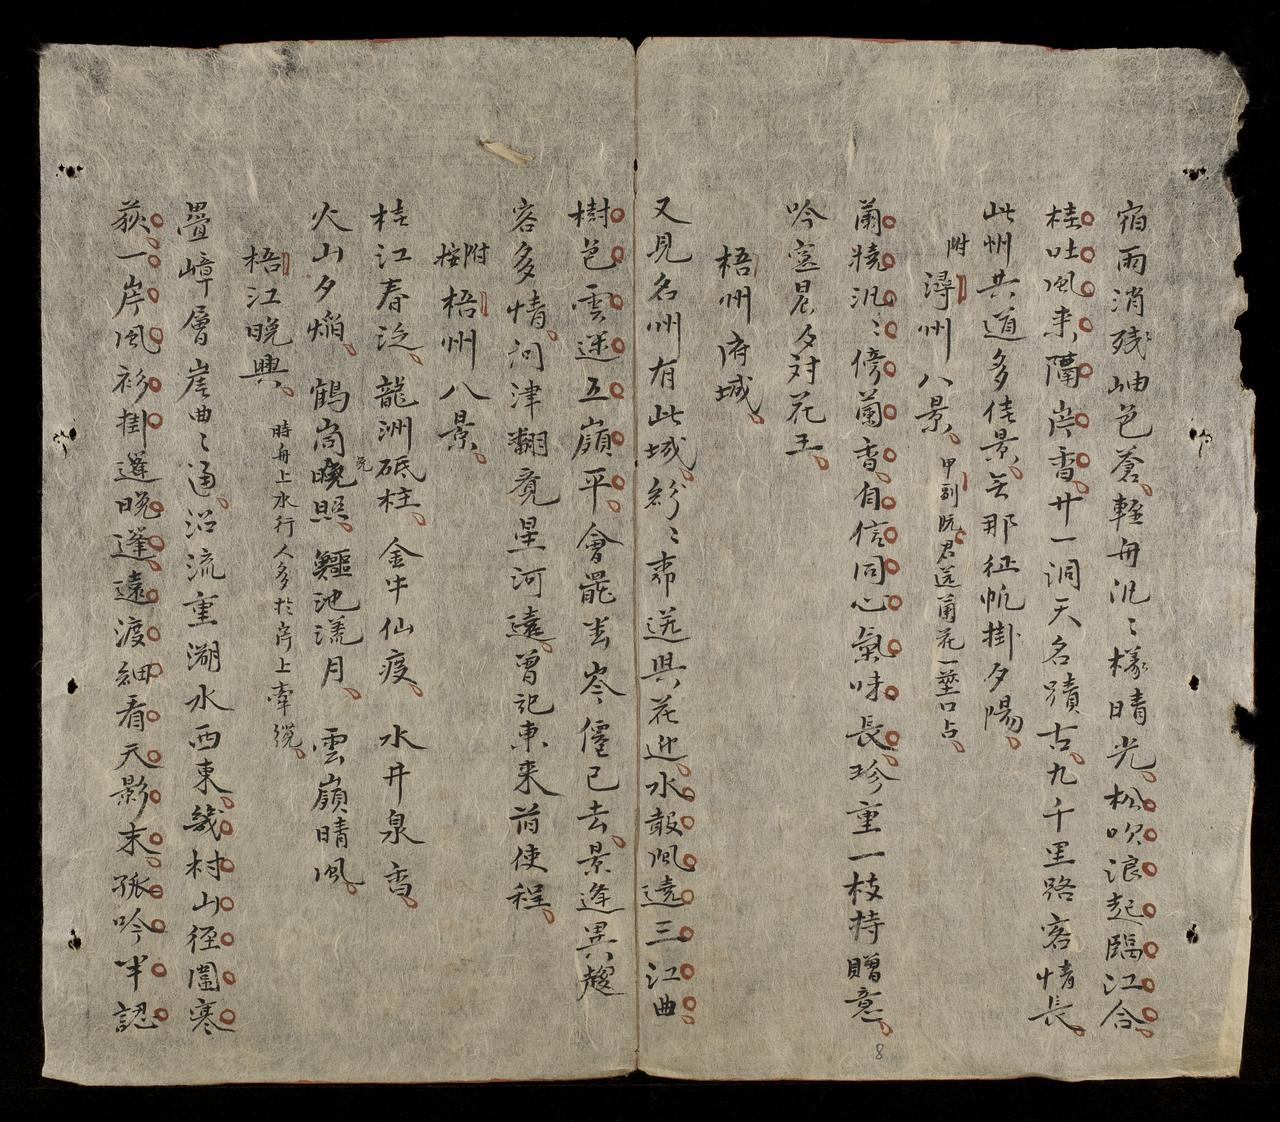 宿雨消殘岫色蒼輕舟汎〻樣晴光松吹浪起臨江合
桂吐風来隔岸香廿一洞天名蹟古九千里路客情長
此州共道多佳景無那征帆掛夕陽
附潯州八景
甲副阮君送蘭花一莖口占
蘭橈汎〻傍蘭香自信同心氣味長珍重一枝持贈意
吟窓晨夕対花王
梧州府城
又見名州有此城紛〻帋送與花迎水報風遠三江曲
樹色雲迷五嶺平會罷岑僊已去景逢異趣
客多情河津翻竟星河遠曾記東来前使程
附按梧州八景
桂江春泛龍洲砥柱金牛仙疫水井泉香
火山夕焰鶴崗晚照鱷池漾月雲嶺晴風
梧江晚興
時舟上水行人多於岸上牽纜
疊嶂層崖曲〻通沿流重溯水西東幾村山徑圍寒
荻一岸風衫掛暹晚蓬遠渡細看天影末孤吟半認
8